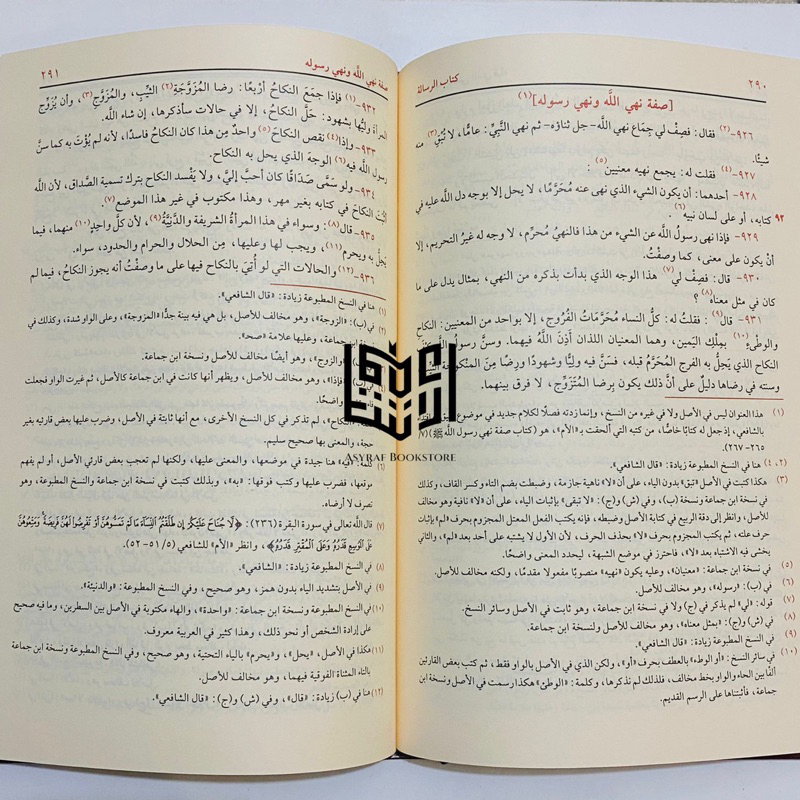 ٢٩٠
كتاب الرسالة
[صفة نهي اللَّه ونهي رسوله](١)
٩٢٦-(٢) فقال: فصِفْ لي جِمَاع نهي اللَّه- جل ثناؤه- ثم نهي النَّبيِّ: عامًّا، لا تُبْقِ(٣) منه
شيئًا.
٩٢٧-(٤) فقلت له: يجمع نهيه معنيين(٥):
٩٢٨- أحدهما: أن يكون الشيء الذي نهى عنه مُحَرَّمًا، لا يحل إلا بوجه دل اللَّه عليه في
٩٢ كتابه، أو على لسان نبيه(٦).
٩٢٩- فإذا نهى رسولُ اللَّه عن الشيء من هذا فالنهيُ مُحَرِّم، لا وجه له غيرُ التحريم، إلا
أنْ يكون على معنى، كما وصفْتُ.
٩٣٠- قال: فصِفْ لي(٧) هذا الوجه الذي بدأت بذكره من النهي، بمثال يدل على ما
كان في مثل معناه(٨)؟
٩٣١- قال(٩): فقلتُ له: كلُّ النساء مُحَرَّمَاتُ الفُرُوج، إلا بواحد من المعنيين: النكاح
والوطْيِ(١٠) بمِلْكِ اليَمِين، وهما المعنيان اللذان أَذِنَ اللَّهُ فيهما. وسنَّ رسولُ اللَّه
النكاح الذي يَحِلُّ به الفرج المُحَرَّمُ قبله، فسَنَّ فيه وليًّا وشهودًا ورِضًا مِنَ المَنْكوحة
وسنته في رضاها دليلٌ على أنَّ ذلك يكون برِضا المُتَزَوِّج، لا فرق بينهما.
(١) هذا العنوان ليس في الأصل ولا في غيره من النسخ، وإنما زدته فصلًا لكلام جديد في موضوع
بالشافعي، إذ جعل له كتابًا خاصًّا، من كتبه التي ألحقت بـ «الأم»، هو (كتاب صفة نهي رسول اللَّه ﷺ) (٧/
٢٦٥-٢٦٧).
(٢، ٤) هنا في النسخ المطبوعة زيادة: «قال الشافعي».
(٣) هكذا كتبت في الأصل «تبق» بدون الياء، على أن «لا» ناهية جازمة، وضبطت بضم التاء وكسر القاف، وكذلك
في نسخة ابن جماعة ونسخة (ب)، وفي (ش) و(ج): «لا تبقي» بإثبات الياء، على أن «لا» نافية وهو مخالف
للأصل، وانظر إلى دقة الربيع في كتابة الأصل وضبطه، فإنه يكتب الفعل المعتل المجزوم بحرف «لم» بإثبات
حرف علته، ثم يكتب المجزوم بحرف «لا» بحذف الحرف، لأن الأول لا يشتبه على أحد بعد «لم»، والثاني
يخشى فيه الاشتباه بعد «لا»، فاحترز في موضع الشبهة، ليحدد المعنى واضحًا.
(٥) في نسخة ابن جماعة: «معنيان»، وعليه يكون «نهيه» منصوبًا مفعولا مقدمًا، ولكنه مخالف للأصل.
(٦) في (ب): «رسوله»، وهو مخالف للأصل.
(٧) قوله: «لي» لم يذكر في (ج) ولا في نسخة ابن جماعة، وهو ثابت في الأصل وسائر النسخ.
(٨) في (ش) و(ج): «بمثل معناه»، وهو مخالف للأصل ولنسخة ابن جماعة.
(٩) في النسخ المطبوعة زيادة: «قال الشافعي».
(١٠) في سائر النسخ: «أو الوطء» بالعطف بحرف «أو»، ولكن الذي في الأصل بالواو فقط، ثم كتب بعض القارئين
ألفًا بين الحاء والواو بخط مخالف، فلذلك لم نذكرها، وكلمة: «الوطئ» هكذا رسمت في الأصل ونسخة ابن
جماعة، فأثبتناها على الرسم القديم.
صفة نهي اللَّه ونهي رسوله
٢٩١
٩٣٢-(١) فإذا جمَعَ النكاحُ أرْبعًا: رضا المُزَوَّجَةِ(٢) الثَّيِّبِ، والمُزَوَّجِ(٣)، وأن يُزَوِّج
المرأةَ وليُّها بشهود: حَلَّ النكاحُ، إلا في حالات سأذكرها، إن شاء اللَّه.
٩٣٣- وإذا(٤) نقص النكاحَ(٥) واحدٌ مِن هذا كان النكاحُ فاسدًا، لأنه لم يُؤْتَ به كما سنَّ
رسول اللَّه فيه(٦) الوجهَ الذي يحل به النكاح.
٩٣٤- ولو سَمَّى صَدَاقًا كان أحبَّ إليَّ، ولا يَفْسد النكاح بترك تسمية الصَّداق، لأن اللَّه
أثبتَ النكاحَ في كتابه بغير مهر، وهذا مكتوب في غير هذا الموضع(٧).
٩٣٥- قال(٨): وسواء في هذا المرأةُ الشريفة والدَّنِيَّةُ(٩)، لأن كلَّ واحدٍ(١٠) منهما، فيما
يَحِلُّ به ويحرم(١١)، ويجب لها وعليها، مِن الحلال والحرام والحدود، سواء.
٩٣٦-(١٢) والحالات التي لو أُتِيَ بالنكاح فيها على ما وصفْتُ أنه يجوز النكاحُ، فيما لم
(١) هنا في النسخ المطبوعة زيادة: «قال الشافعي».
(٢) في (ب): «الزوجة»، وهو مخالف للأصل، بل هي فيه بينة جدًّا «المزوجة»، وعلى الواو شدة، وكذلك في
ابن جماعة، وعليها علامة «صح».
«والزوج»، وهو أيضًا مخالف للأصل ونسخة ابن جماعة.
«فإذا»، وهو مخالف للأصل، ويظهر أنها كانت في ابن جماعة كالأصل، ثم غيرت الواو فجعلت
واضحًا.
«النكاح»، لم تذكر في كل النسخ الأخرى، مع أنها ثابتة في الأصل، وضرب عليها بعض قارئيه بغير
حجة، والمعنى بها صحيح سليم.
(٦) كلمة: «فيه» هنا جيدة في موضعها، والمعنى عليها، ولكنها لم تعجب بعض قارئي الأصل، أو لم يفهم
موقعها، فضرب عليها وكتب فوقها: «به»، وبذلك كتبت في نسخة ابن جماعة والنسخ المطبوعة، وهو
تصرف لا أرضاه.
(٧) قال اللَّه تعالى في سورة البقرة (٢٣٦): ﴿لَّا جُنَاحَ عَلَيْكُمْ إِن طَلَّقْتُمُ ٱلنِّسَآءَ مَا لَمْ تَمَسُّوهُنَّ أَوْ تَفْرِضُوا۟ لَهُنَّ فَرِيضَةً وَمَتِّعُوهُنَّ
عَلَى ٱلْمُوسِعِ قَدَرُهُۥ وَعَلَى ٱلْمُقْتِرِ قَدَرُهُۥ﴾، وانظر «الأم» للشافعي (٥/ ٥١-٥٢).
(٨) في النسخ المطبوعة زيادة: «الشافعي».
(٩) في الأصل بتشديد الياء بدون همز، وهو صحيح، وفي النسخ المطبوعة: «والدنيئة».
(١٠) في النسخ المطبوعة ونسخة ابن جماعة: «واحدة»، والهاء مكتوبة في الأصل بين السطرين، وما فيه صحيح
على إرادة الشخص أو نحو ذلك، وهذا كثير في العربية معروف.
(١١) هكذا في الأصل، «يحل»، و«يحرم» بالياء التحتية، وهو صحيح، وفي النسخ المطبوعة ونسخة ابن جماعة
بالتاء المثناة الفوقية فيهما، وهو مخالف للأصل.
(١٢) هنا في (ب) زيادة: «قال»، وفي (ش) و(ج): «قال الشافعي».
ASYRAF BOOKSTORE